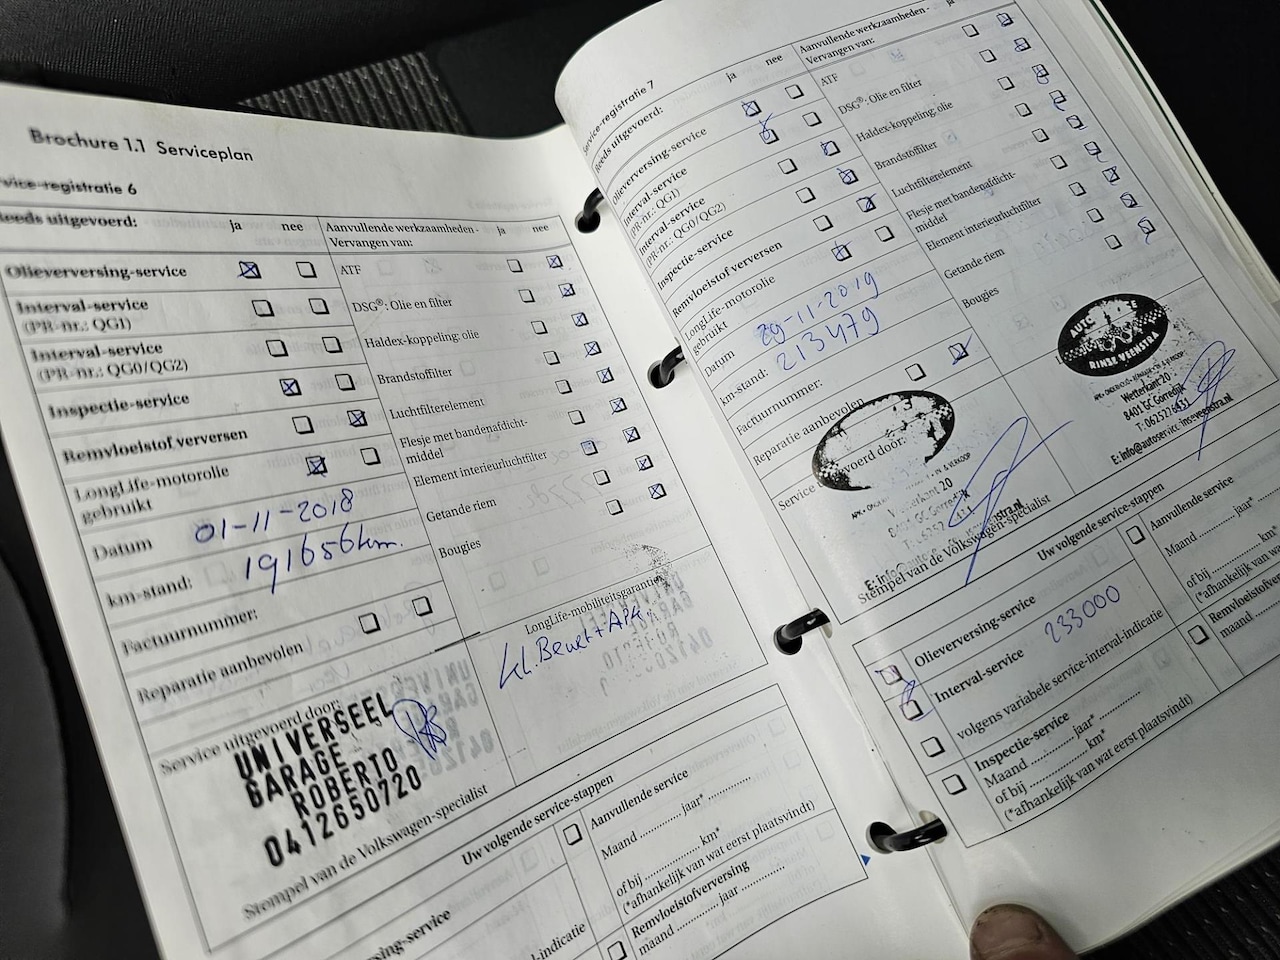 Brochure 1.1 Serviceplan
vice-registratie 6
eeds uitgevoerd:
ja
nee
Aanvullende werkzaamheden -
Vervangen van:
ja
nee
Olieverversing-service
Interval-service
(PR-nr.: QG1)
Interval-service
(PR-nr.: QG0/QG2)
Inspectie-service
Remvloeistof verversen
LongLife-motorolie
gebruikt
Datum
01-11-2018
km-stand:
191656km.
Factuurnummer:
Reparatie aanbevolen
Service uitgevoerd door:
UNIVERSEEL
GARAGE
ROBERTO
0412650720
Stempel van de Volkswagen-specialist
ATF
DSG®: Olie en filter
Haldex-koppeling: olie
Brandstoffilter
Luchtfilterelement
Flesje met bandenafdicht-
middel
Element interieurluchtfilter
Getande riem
Bougies
LongLife-mobiliteitsgarantie
Kl. Beurt + APK
Uw volgende service-stappen
ersing-service
l-indicatie
Aanvullende service
Maand ............. jaar* .............
of bij .................... km*
(*afhankelijk van wat eerst plaatsvindt)
Remvloeistofverversing
maand ........... jaar .............
Service-registratie 7
Reeds uitgevoerd:
ja
nee
Aanvullende werkzaamheden -
Vervangen van:
ja
Olieverversing-service
Interval-service
(PR-nr.: QG1)
Interval-service
(PR-nr.: QG0/QG2)
Inspectie-service
Remvloeistof verversen
LongLife-motorolie
gebruikt
Datum
29-11-2019
km-stand:
213479
Factuurnummer:
Reparatie aanbevolen
Service
voerd door:
Stempel van de Volkswagen-specialist
ATF
DSG®: Olie en filter
Haldex-koppeling: olie
Brandstoffilter
Luchtfilterelement
Flesje met bandenafdicht-
middel
Element interieurluchtfilter
Getande riem
Bougies
AUTO
RINSE VEENSTRA
Wetterkant 20
8401 GC Gorredijk
Uw volgende service-stappen
Olieverversing-service
Interval-service
233000
volgens variabele service-interval-indicatie
Inspectie-service
Maand ............. jaar*.............
of bij .................... km*
(*afhankelijk van wat eerst plaatsvindt)
Aanvullende service
Maand ............. jaar*
of bij .................... km*
(*afhankelijk van
Remvloeistofve
maand